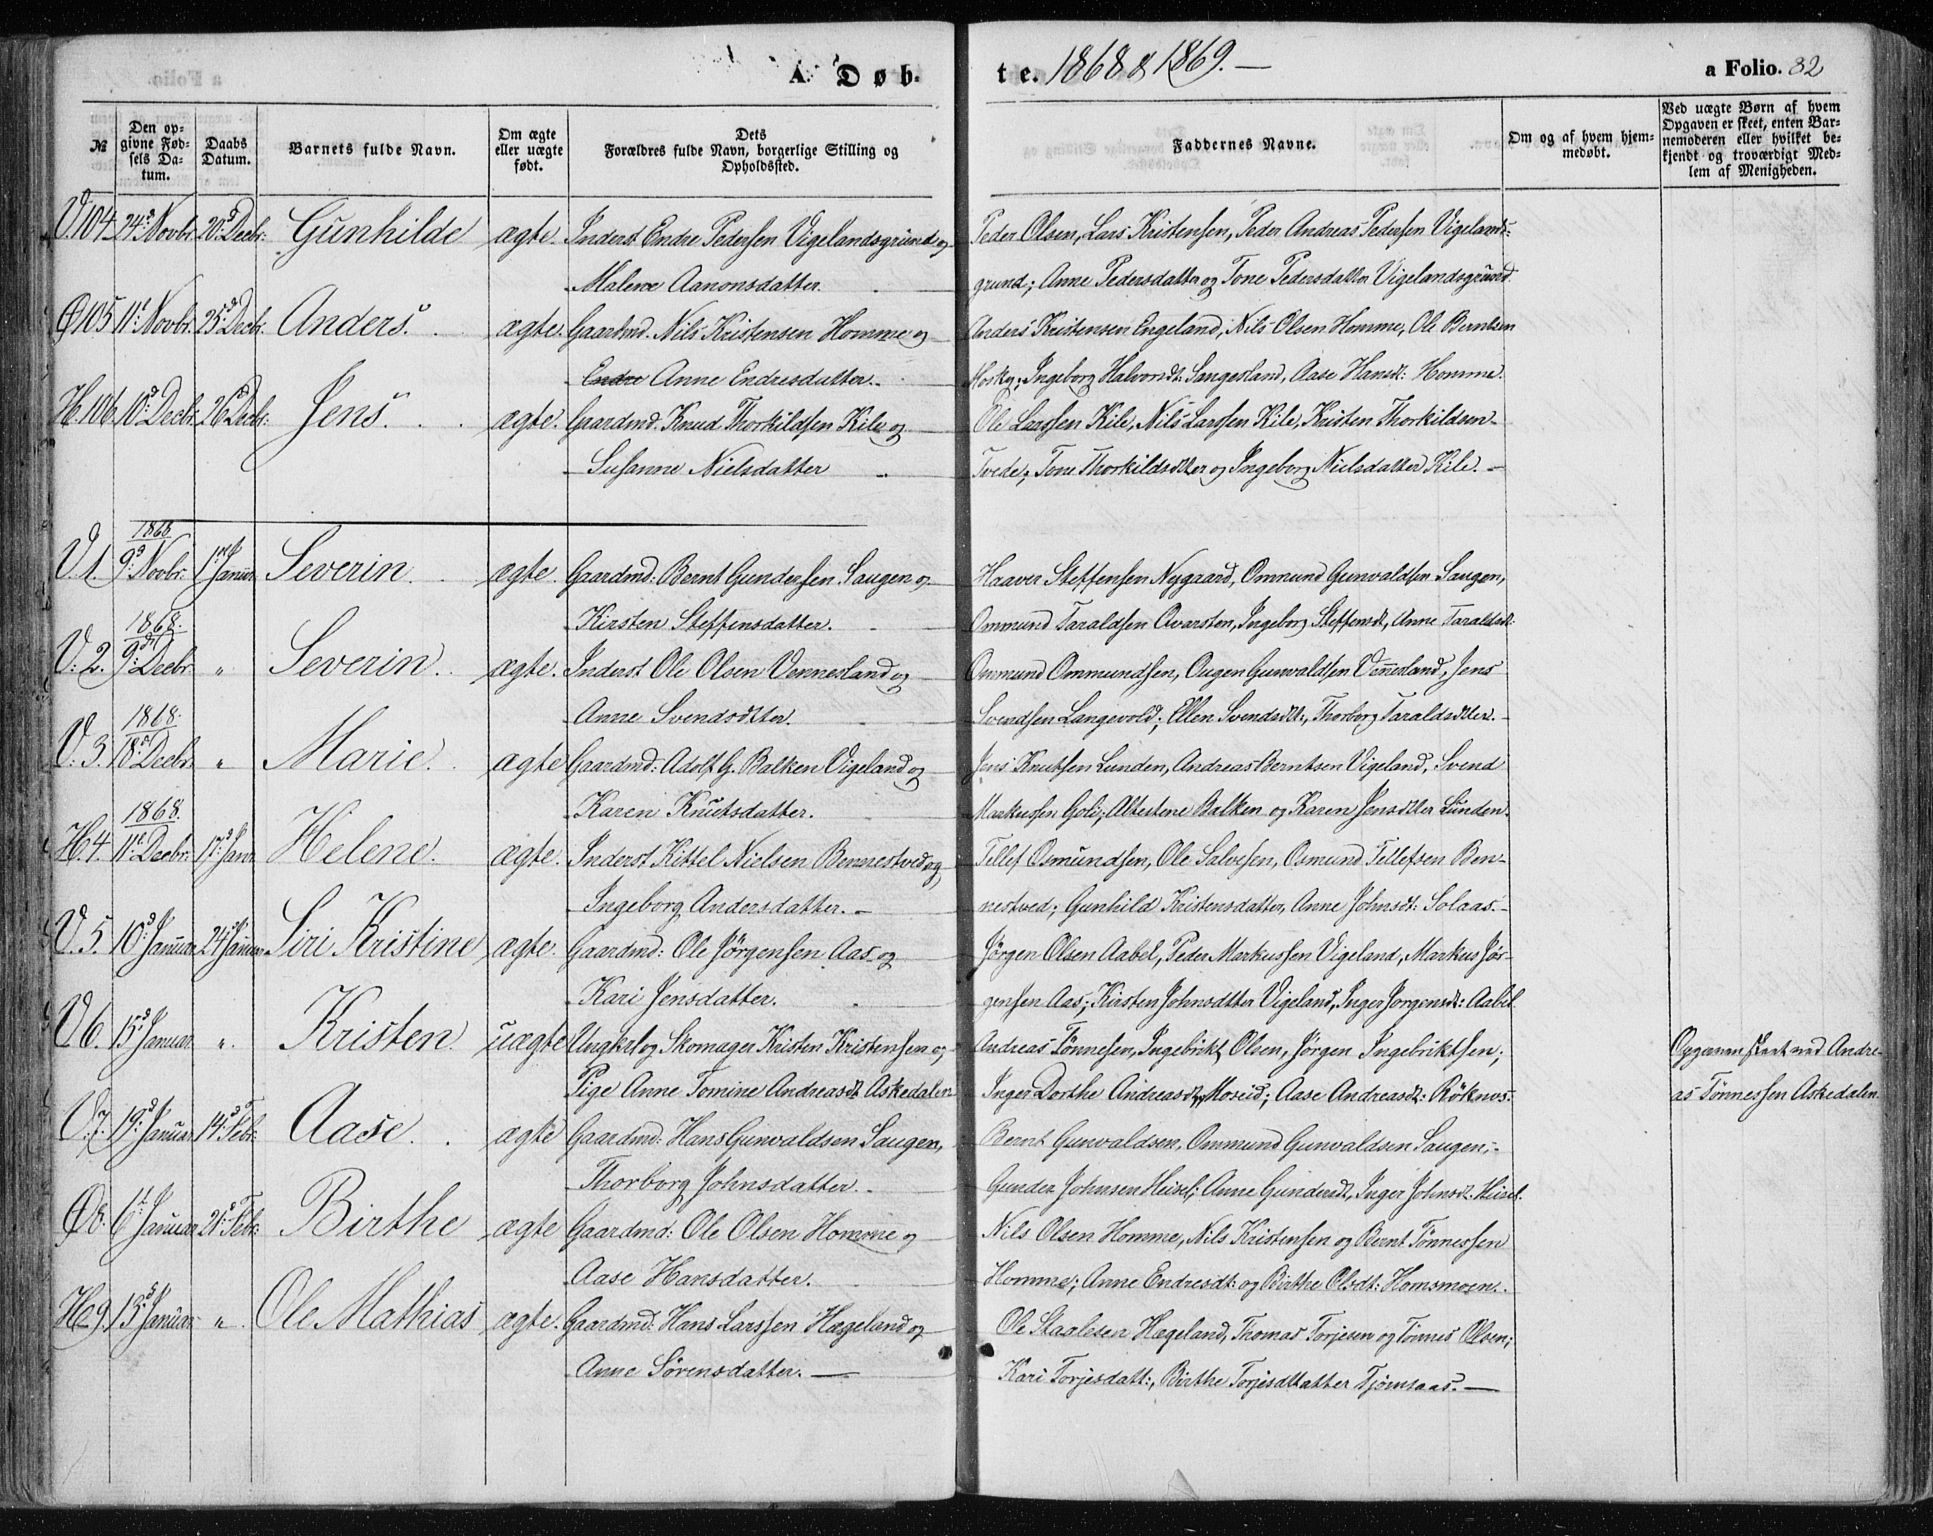 A. Døb- te. 1868 & 1869. —
a Folio. 82
№ | Den opgivne Fødsels Datum. | Daabs Datum. | Barnets fulde Navn. | Om ægte eller uægte født. | Dets Forældres fulde Navn, borgerlige Stilling og Opholdssted. | Faddernes Navne. | Om og af hvem hjemmedøbt. | Ved uægte Børn af hvem Opgaven er skeet, enten Barnemoderen eller hvilket bekjendt og troværdigt Medlem af Menigheden.
V. 104. 24de Novbr. 20de Decbr. Gunhilde ægte. Inderst Endre Pedersen Vigelandsgrund og Peder Olsen, Lars Kristensen, Peder Andreas Pedersen Vigelands-
Malene Aanonsdatter. grund; Anne Pedersdatter og Tone Pedersdatter Vigelandsgrund
Ø 105 11te Novbr. 25de Decbr. Anders. ægte. Gaardmd. Nils Kristensen Homme og Anders Kristensen Engeland, Nils Olsen Homme, Ole Berntsen
Endre Anne Endresdatter. Ingeborg Halvordt: Sangesland, Aase Hansdt: Homme.
H. 106. 10de Decbr. 26de Decbr. Jens. ægte. Gaardmd. Knud Thorkildsen Kile og Ole Larssen Kile, Nils Larssen Kile, Kristen Thorkildsen
Susanne Nielsdatter Tvede; Tone Thorkildsdtter og Ingeborg Nielsdatter Kile. —
1868.
V. 1. 9de Novbr. 1ste Januar Severin. ægte. Gaardmd: Bernt Gundersen Saugen og Haaver Steffensen Nygaard, Ommund Gunvaldsen Saugen,
Kirsten Steffensdatter. Ommund Taraldsen Qvarsten, Ingeborg Steffensdt, Anne Taraldsdt:
1868.
V. 2. 9de Decbr. " Severin. ægte. Inderst Ole Olsen Vennesland og Ommund Ommundsen, Ougen Gunvaldsen Vennesland, Jens
Anne Svendsdtter. Svendsen Langevold; Ellen Svendsdt:, Thorborg Taraldsdtter.
1868.
V. 3. 18de Decbr. " Marie. ægte Gaardmd: Adolf G. Balken Vigeland og Jens Knutsen Lunden, Andreas Berntsen Vigeland, Svend
Karen Knutsdatter. Markussen Goli; Balken og Karen Jensdtter Lunden.
1868.
H. 4. 11te Decbr. 17de Janr. Helene. ægte. Inderst Kittel Nielsen Bennestved og Tellef Osmundsen, Ole Salvesen, Osmund Tellefsen Ben-
Ingeborg Andersdatter. — nestved; Gunhild Kristensdatter, Anne Johnsdt: Solaas.
V. 5. 10de Januar 24de Januar Siri Kristine ægte. Gaardmd: Ole Jörgensen Aas og Jörgen Olsen Aabel, Peder Markussen Vigeland, Markus Jör-
Kari Jensdatter. gensen Aas; Kirsten Johnsdtter Vigeland, Inger Jörgensdt: Aabel
V 6. 15de Januar ". Kristen uægte Ungkrl og Skomager Kristen Kristensen og Andreas Tönnesen, Ingebrikt Olsen, Jörgen Ingebriktsen; Opgaven skeet ved Andre-
Pige Anne Tomine Andreasdt: Askedalen Inger Dorthe Andreasdt, Moseid; Aase Andreasdt: Röknes as Tönnessen Askedalen.
V. 7. 19de Januar 14de Febr. Aase. ægte Gaardmd: Hans Gunvaldsen Saugen, Bernt Gunvaldsen, Ommund Gunvaldsen Saugen;
Thorborg Johnsdatter. Gunder Johnsen Heisel; Anne Gundersdt, Inger Johnsdt. Heisel.
Ø 8. 6te Januar 21de Febr. Birthe ægte Gaardmd: Ole Olsen Homme og Nils Olsen Homme, Nils Kristensen og Bernt Tönnessen
Aase Hansdatter. Homme; Anne Endresdt: og Birthe Olsdt: Homsmoen.
H 9. 13de Januar " Ole Mathias ægte. Gaardmd: Hans Larssen Hægeland og Ole Staalesen Hægeland, Thomas Torjesen og Tönnes Olsen;
Anne Sörensdatter. — Kari Torjesdatt:, Birthe Torjesdtatter Tjomsaas. —